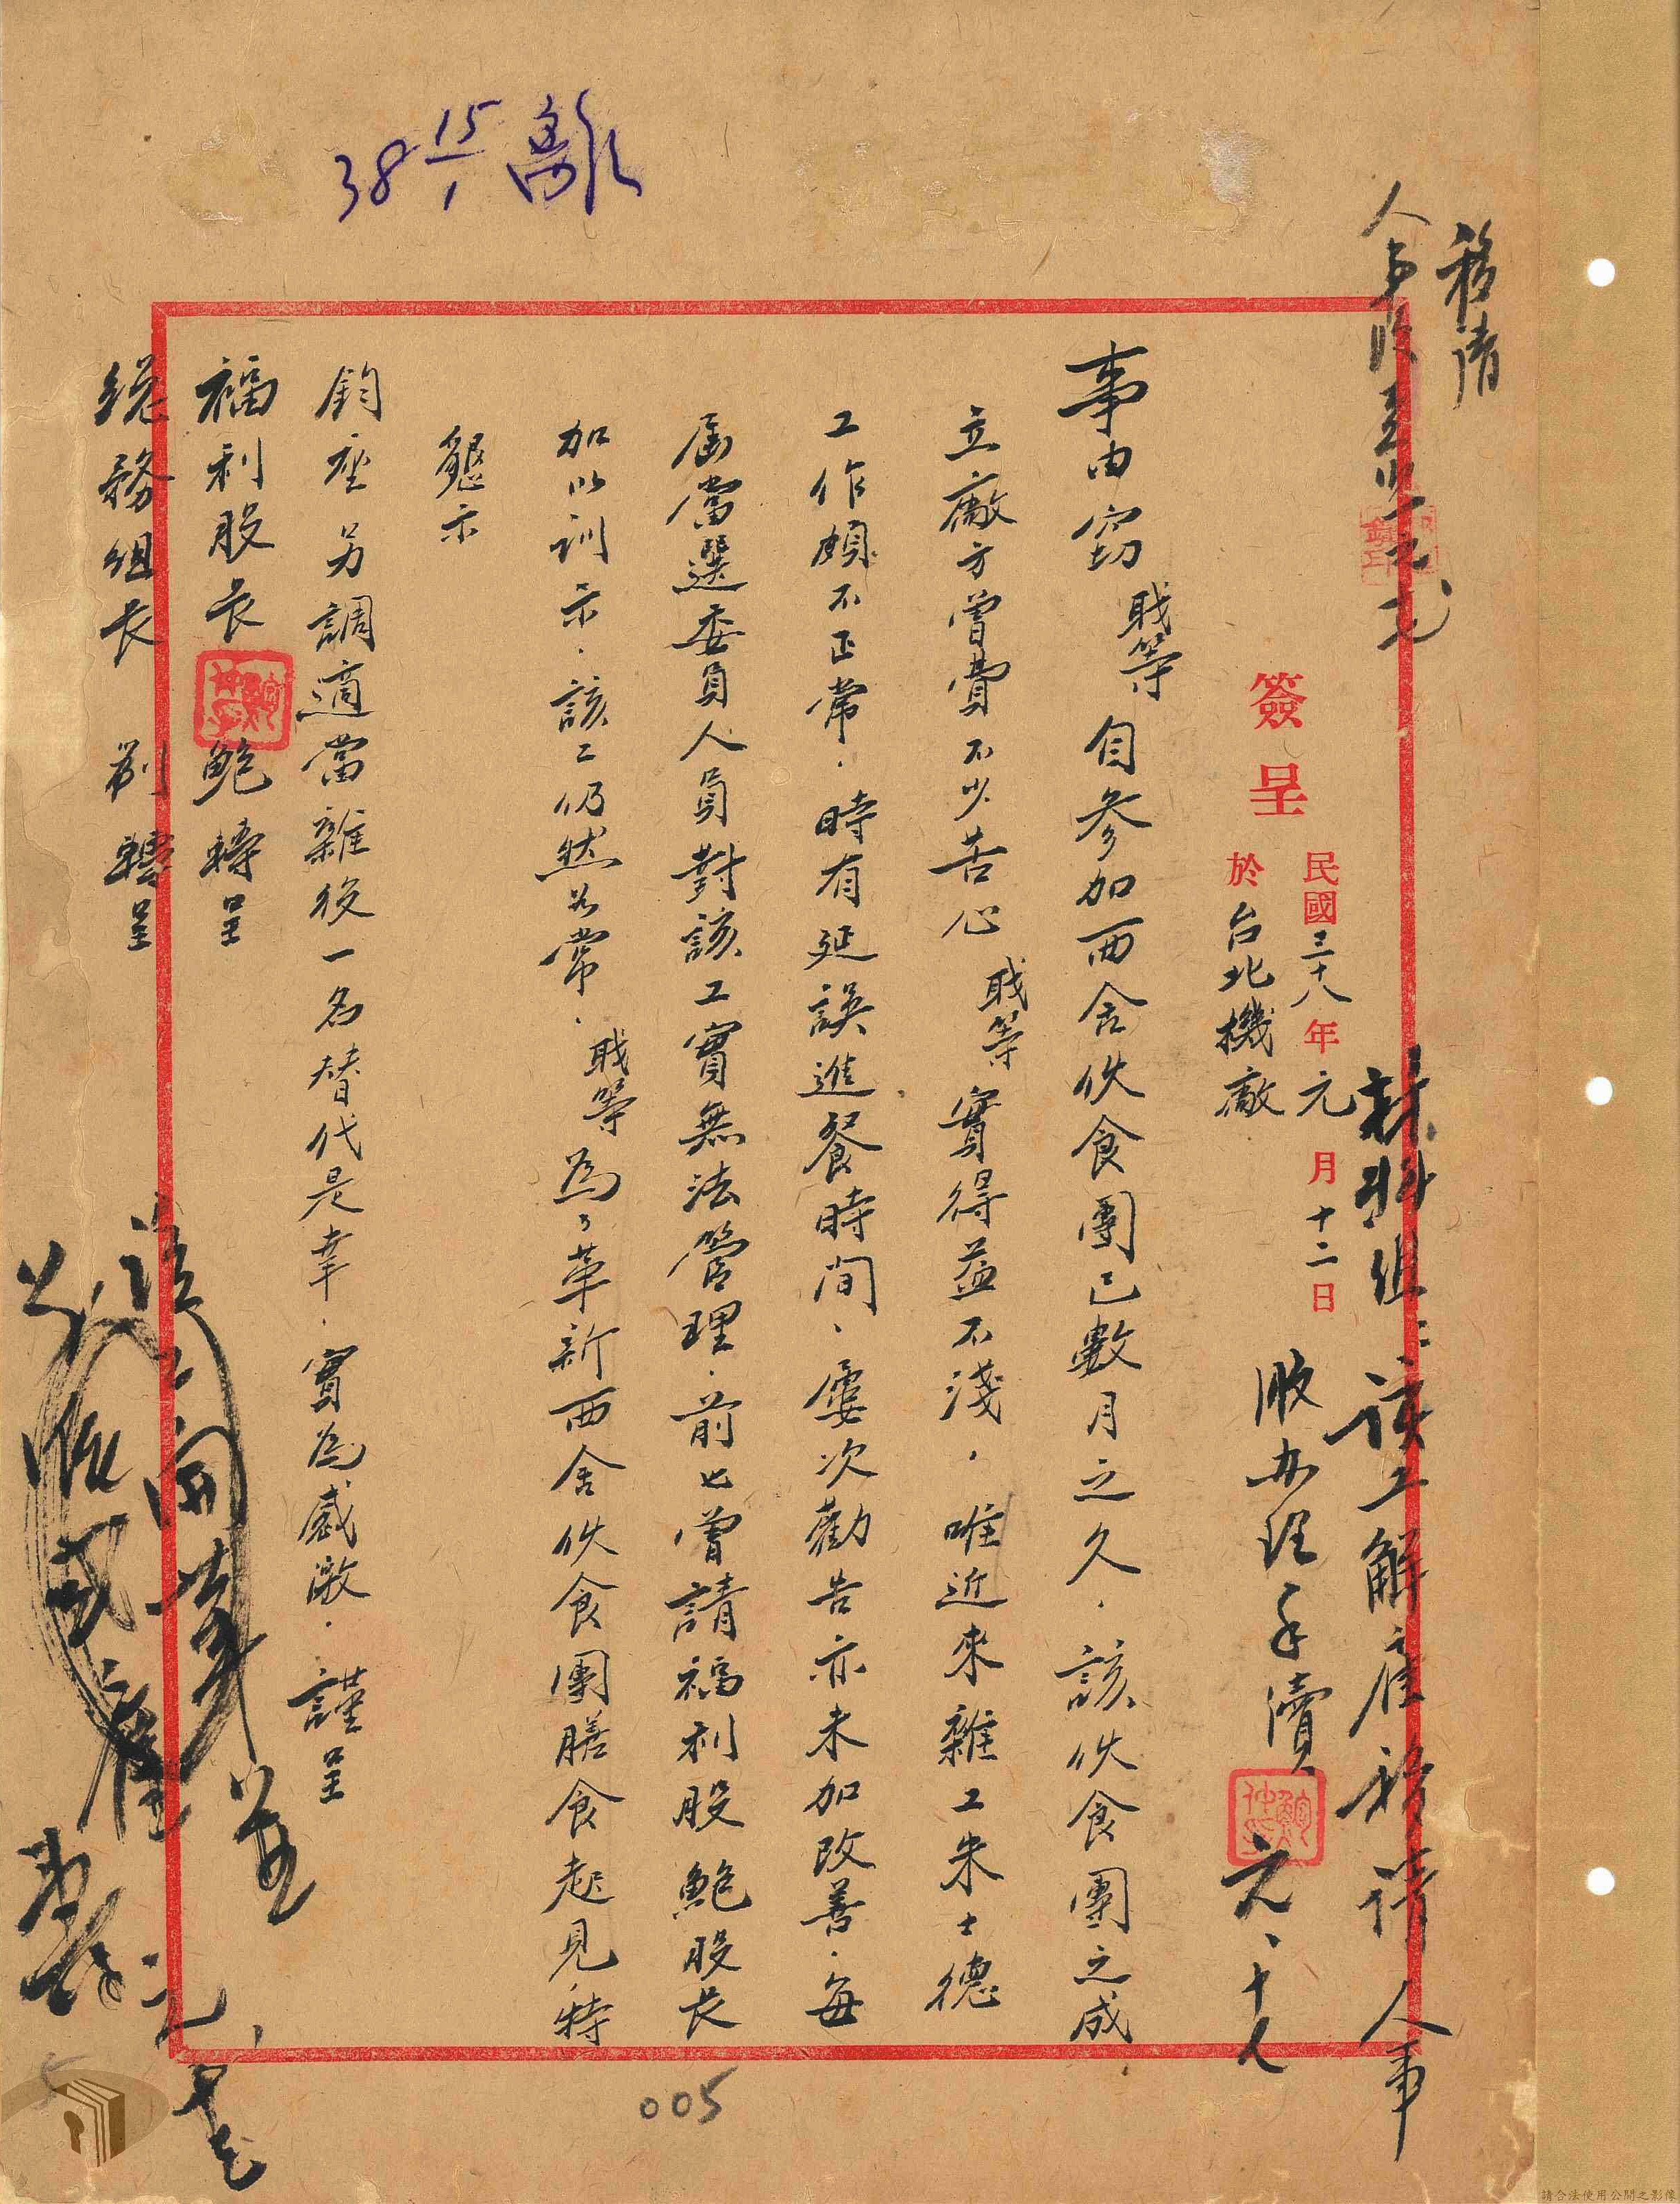 38 15/1 離
移請
人事股
簽呈
民國三十八年元月十二日
於台北機廠
事由竊職等自參加西舍伙食團已數月之久．該伙食團之成
立廠方曾費不少苦心職等實得益不淺，唯近來雜工朱士德
工作頗不正常．時有延誤進餐時間、屢次勸告亦未加改善．每
屆當選委員人員對該工實無法管理．前也曾請福利股鮑股長
加以訓示．該工仍然如常．職等為々革新西舍伙食團膳食起見，特
懇示
鈞座另調適當雜役一名替代是幸．實為感激．謹呈
福利股長鮑轉呈
總務組長 劉轉呈
該工解雇移請人事
股办理手續
元、十八
005
請合法使用公開之影像